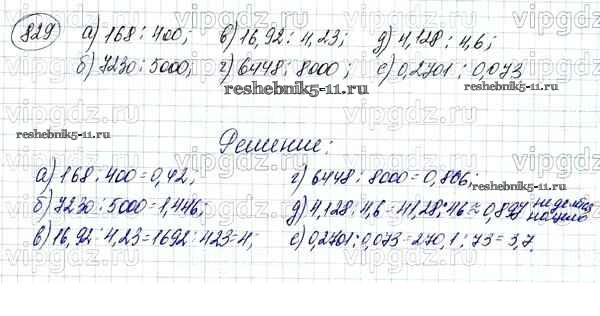 829 а) 168 : 400; в) 16,92 : 4,23; д) 4,128 : 4,6;
б) 7230 : 5000; г) 6448 : 8000; е) 0,2701 : 0,073
reshebnik5-11.ru
reshebnik5-11.ru
Решение:
а) 168 : 400 = 0,42; г) 6448 : 8000 = 0,806;
reshebnik5-11.ru
б) 7230 : 5000 = 1,446; д) 4,128 : 4,6 = 41,28 : 46 ≈ 0,897 не делится нацело
в) 16,92 : 4,23 = 1692 : 423 = 4; е) 0,2701 : 0,073 = 270,1 : 73 = 3,7.
vipgdz.com